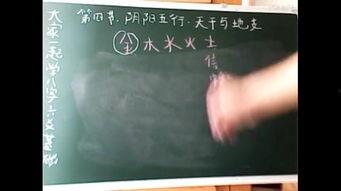 大家一起学八字六爻基础
第四节、阴阳五行、天干与地支
金水木火土
信